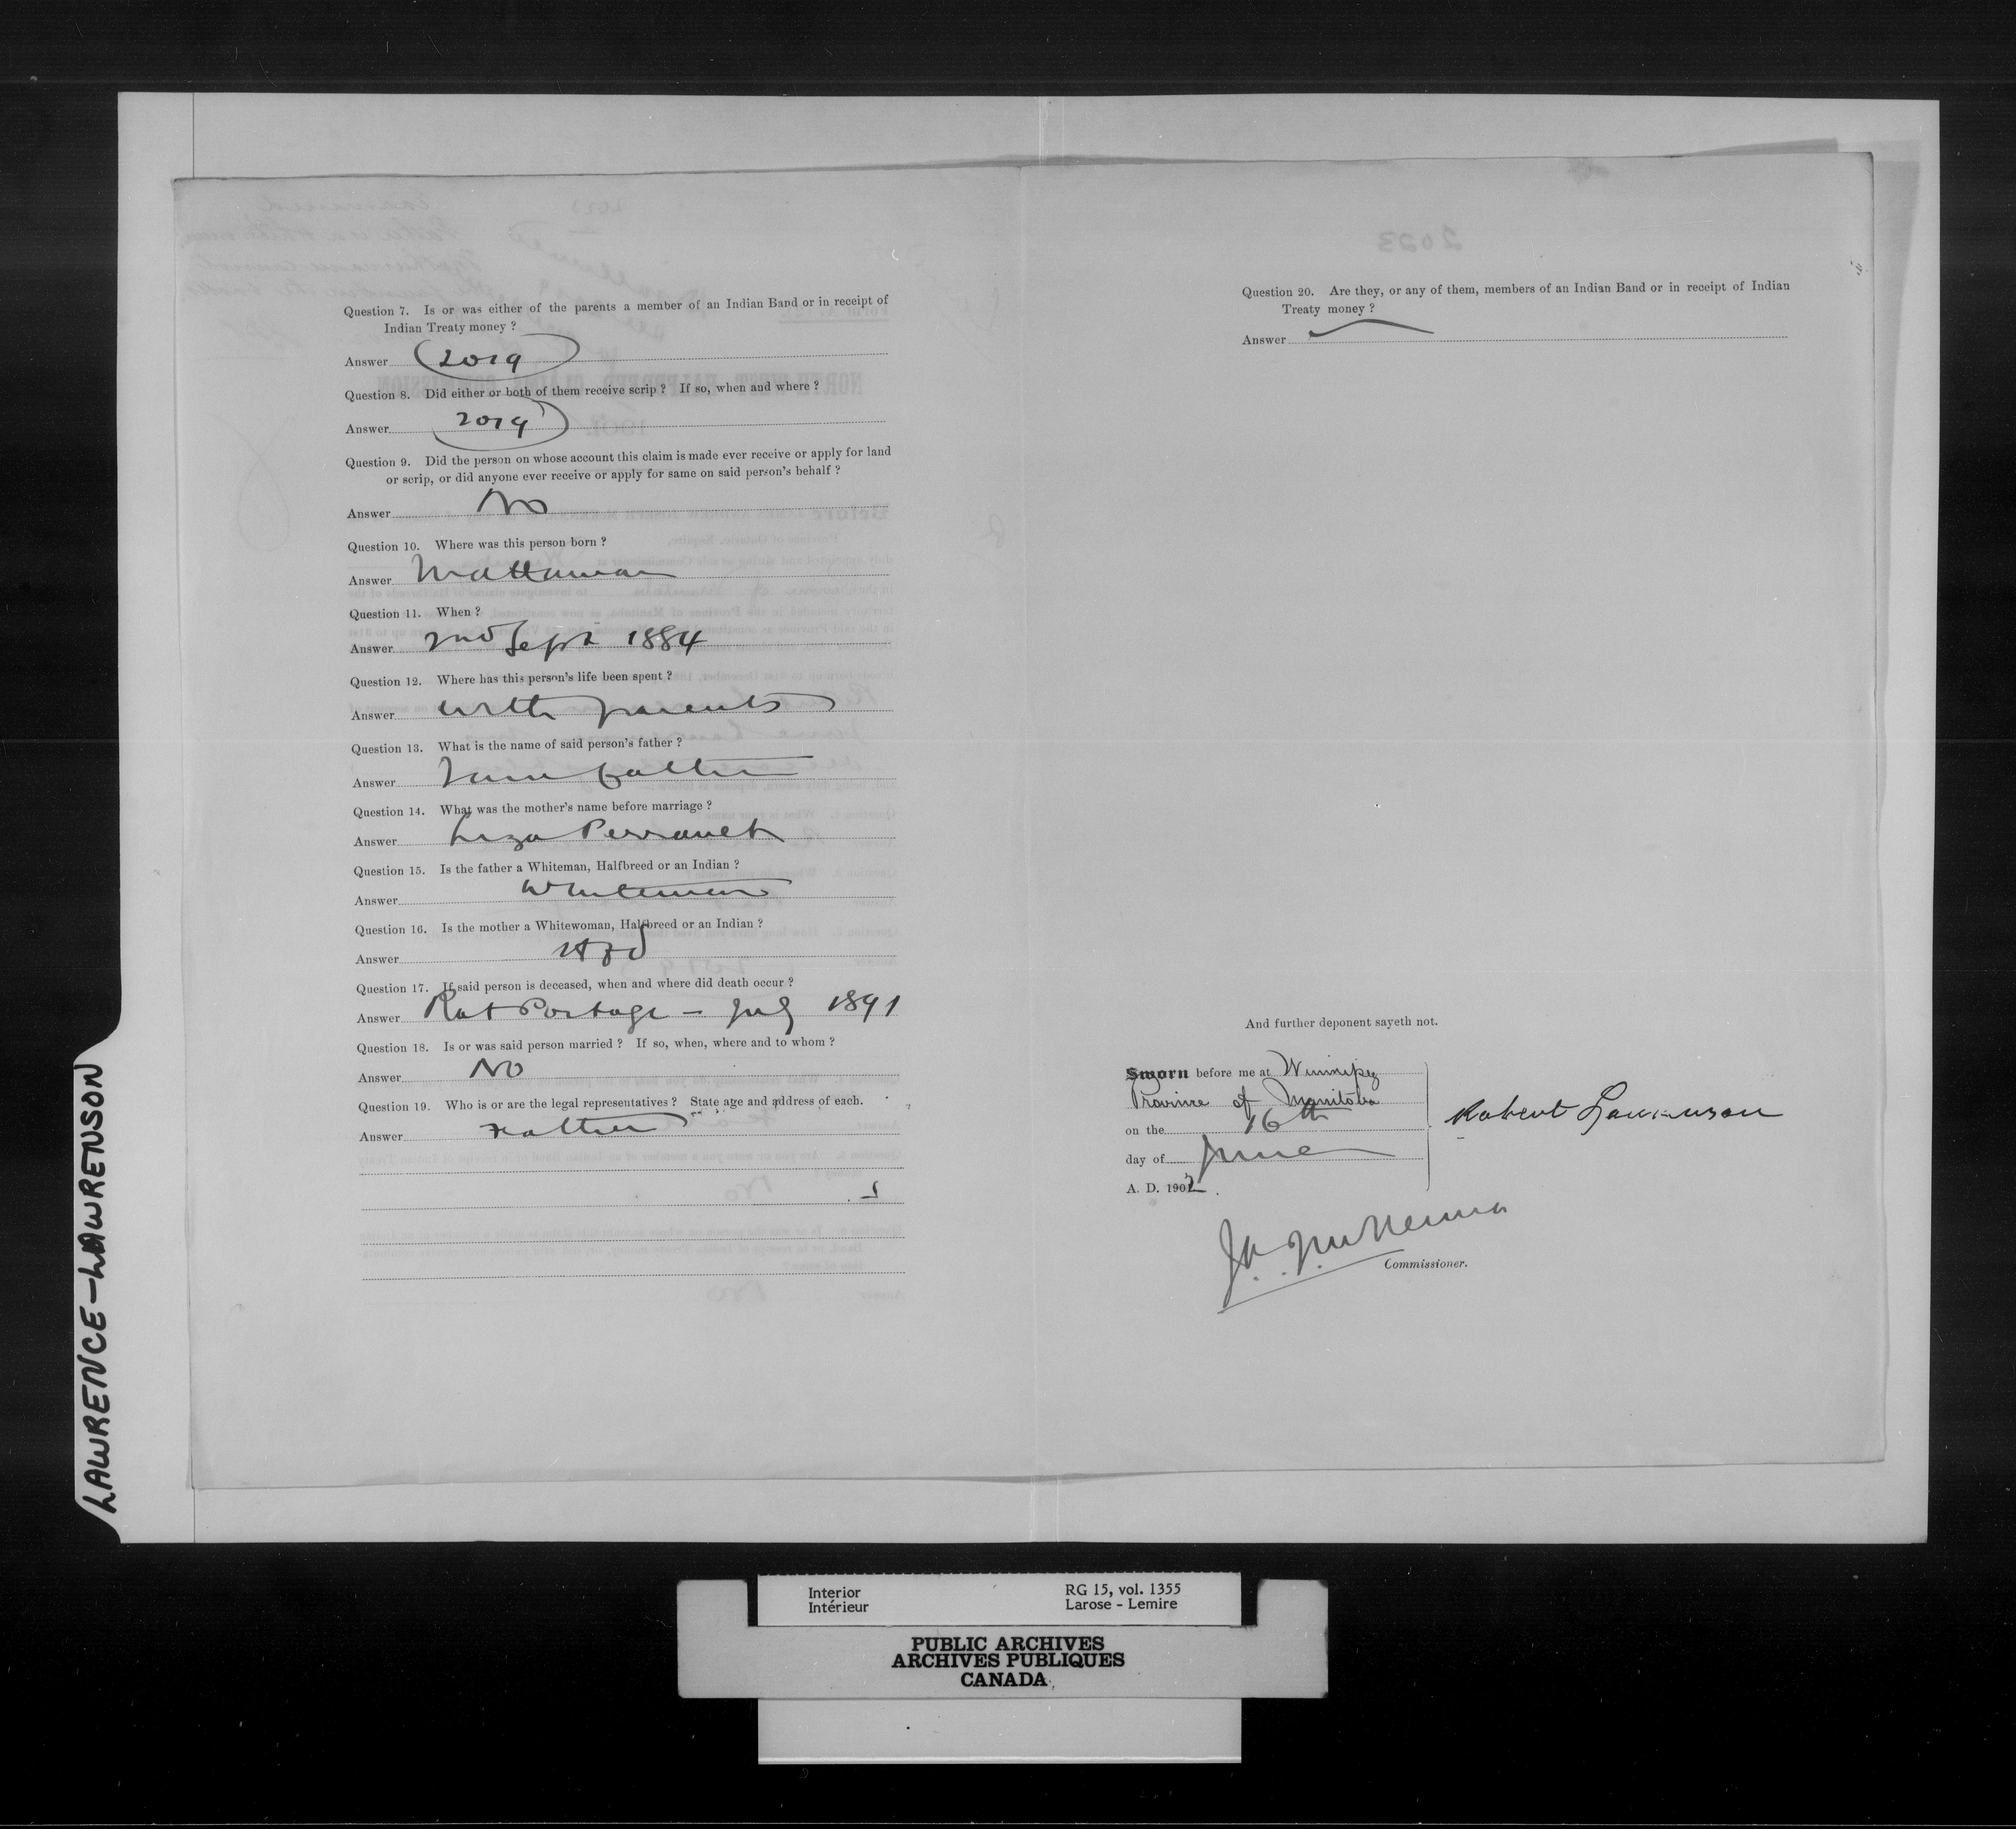 Question 7. Is or was either of the parents a member of an Indian Band or in receipt of
Indian Treaty money ?
Answer 2019
Question 8. Did either or both of them receive scrip ? If so, when and where ?
Answer 2019
Question 9. Did the person on whose account this claim is made ever receive or apply for land
or scrip, or did anyone ever receive or apply for same on said person's behalf ?
Answer No
Question 10. Where was this person born ?
Answer Mattawan
Question 11. When ?
Answer 2nd Sept 1884
Question 12. Where has this person's life been spent ?
Answer with parents
Question 13. What is the name of said person's father ?
Answer I am father
Question 14. What was the mother's name before marriage ?
Answer Liza Perrault
Question 15. Is the father a Whiteman, Halfbreed or an Indian ?
Answer Whiteman
Question 16. Is the mother a Whitewoman, Halfbreed or an Indian ?
Answer HBd
Question 17. If said person is deceased, when and where did death occur ?
Answer Rat Portage - July 1891
Question 18. Is or was said person married ? If so, when, where and to whom ?
Answer No
Question 19. Who is or are the legal representatives ? State age and address of each.
Answer Father
2023
Question 20. Are they, or any of them, members of an Indian Band or in receipt of Indian
Treaty money ?
Answer
And further deponent sayeth not.
Sworn before me at Winnipeg
Province of Manitoba
on the 16th
day of June
A. D. 1902.
Robert Lawrenson
J. A. J. McKenna
Commissioner.
LAWRENCE-LAWRENSON
Interior RG 15, vol. 1355
Intérieur Larose - Lemire
PUBLIC ARCHIVES
ARCHIVES PUBLIQUES
CANADA